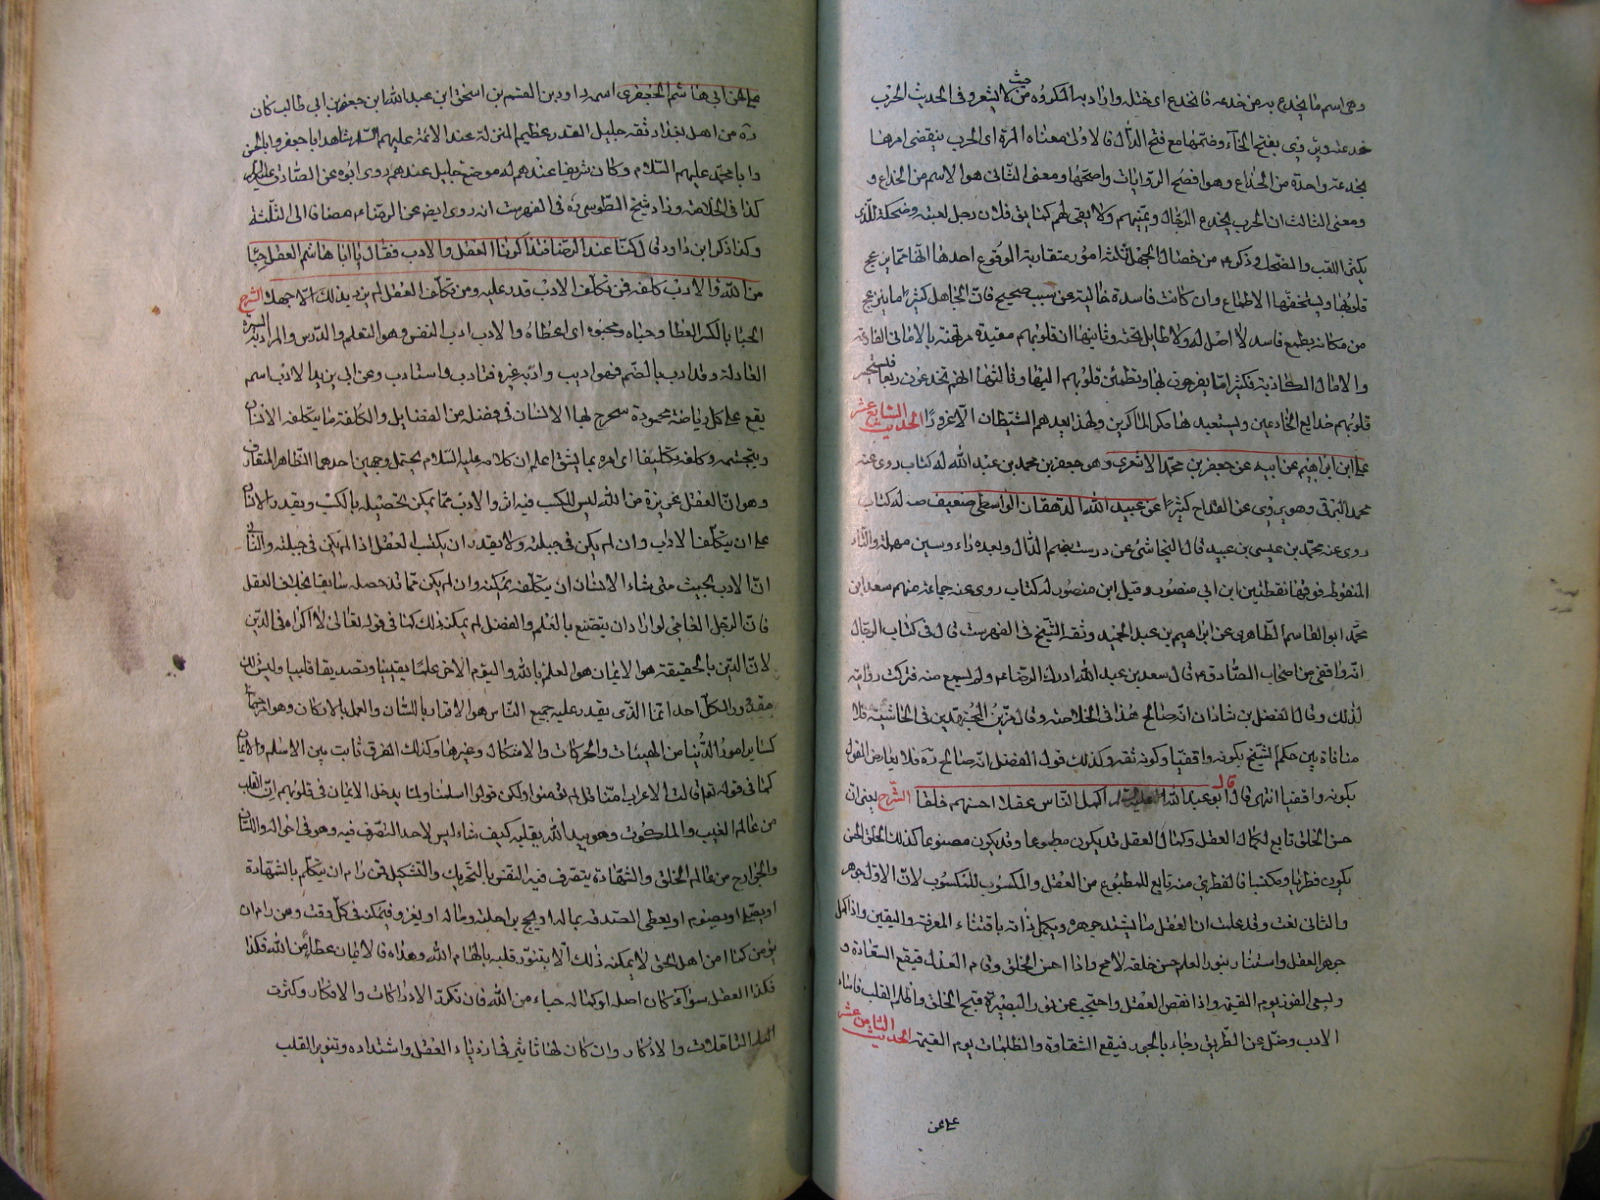 وهى اسم ما يخدع به من خدعه فانخدع اى ختله واراد به المكروه من حيث لا يشعر وفى الحديث الحرب
خدعة وروى بفتح الخاء وضمها مع فتح الدال فالاول معناه المرة اى الحرب ينقضى امرها
بخدعة واحدة من الخداع وهو افصح الروايات واصحها ومعنى الثانى هو الاسم من الخداع و
ومعنى الثالث ان الحرب يخدع الرجال ويمنيهم ولا يفى لهم كما يق فلان رجل لعبة وضحكة للذى
يكثر اللعب والضحك وذكر من خصال الجهل ثلثة امور متقاربة الوقوع احدها انها مما ينزعج
قلوبها ويستخفها الاطماع وان كانت فاسدة خالية عن سبب صحيح فان الجاهل كثيرا ما ينزعج
من مكانه بطمع فاسد لا اصل له ولا طايل تحته وثانيها ان قلوبهم مقيدة مرتهنة بالامانى الفارغة
والامال الكاذبة فكثيرا ما يفرحون بها وتطمئن قلوبهم اليها وثالثها انهم تخدعون ربما فتستحر
قلوبهم خدايع الخادعين ويستعبدها مكر الماكرين ولهذا يعدهم الشيطان الا غرورا الحديث السابع عشر
على ابن ابراهيم عن ابيه عن جعفر بن محمد الاشعرى وهو جعفر بن محمد بن عبد الله له كتاب روى عنه
محمد البرقى وهو يروى عن القداح كثيرا عن عبيد الله الدهقان الواسطى ضعيف صه له كتاب
روى عنه محمد بن عيسى بن عبيد قال النجاشى عن درست بضم الدال وبعده راء وسين مهملة والتاء
المنقوطة فوقها نقطتين ابن ابى منصور وقيل ابن منصور له كتاب روى عنه جماعة منهم سعد ابن
محمد ابو القاسم الطاهرى عن ابراهيم بن عبد الحميد وثقه الشيخ فى الفهرست قال فى كتاب الرجال
انه واقفى من اصحاب الصادق ع قال سعد بن عبد الله ادرك الرضا ع ولم يسمع منه فتركت روايته
لذلك وقال الفضل بن شاذان انه صالح هذا فى الخلاصة وقال زين المجتهدين فى الحاشية فلا
منافاة بين حكم الشيخ بكونه واقفيا وكونه ثقه وكذلك قول الفضل انه صالح ره فلا يعارض القول
بكونه واقفيا انتهى قال قال ابو عبد الله عليه السلام اكمل الناس عقلا احسنهم خلقا الشرح يعنى ان
حسن الخلق تابع لكمال العقل وكما ان العقل قد يكون مطبوعا وقد يكون مصنوعا كذلك الخلق الحسن
يكون فطريا ومكتسبا فالفطرى منه تابع للمطبوع من العقل والمكسوب للمكسوب لان الاول جوهر
والثانى نعت وقد علمت ان العقل ما يشتد جوهره ويكمل ذاته باقتناء المعرفة واليقين واذا كمل
جوهر العقل واستنار بنور العلم حسن خلقه لامح واذا احسن الخلق وقام العدل فيقع السعادة و
ويسعى الفوز يوم القيمة واذا نقص العقل واحتجب عن نور البصيرة قبح الخلق واظلم القلب فاساء
الادب وضل عن الطريق وجاء بالجور فيقع الشقاوة والظلمات يوم القيمة الحديث الثامن عشر
على عن
على عن ابى هاشم الجعفرى اسمه داود بن القسم بن اسحق ابن عبد الله ابن جعفر بن ابى طالب كان
ره من اهل بغداد ثقه جليل القدر عظيم المنزلة عند الائمة عليهم السلم شاهد ابا جعفر وابا الحسن
وابا محمد عليهم السلام وكان شريفا عندهم له موضع جليل عندهم روى ابوه عن الصادق عليه السلم
كذا فى الخلاصة وزاد شيخ الطوسى ره فى الفهرست انه روى ايض عن الرضا ع مضافا الى الثلثة
وكذا ذكر ابن داود قال كنا عند الرضا فتذاكرنا العقل والادب فقال يا ابا هاشم العقل حباء
من الله والادب كلفة فمن تكلف الادب قدر عليه ومن تكلف العقل لم يزدد بذلك الا جهلا الشرح
الحبا بالكسر العطا وحباه ومحبوه اى اعطاه والادب ادب النفس وهو التعلم والدرس والمراد به السيرة
العادلة وقد ادب بالضم فهو اديب وادبه غيره فتادب واستادب وعن ابى زيد الادب اسم
يقع على كل رياضة محمودة يتخرج بها الانسان فى فضل من الفضايل والكلفة ما يتكلفه الانسان
ويتجشمه وكلفه تكليفا اى امره بما يشق اعلم ان كلامه عليه السلام يحتمل وجهين احدهما الظاهر المتعارف
وهو ان العقل غريزة من الله ليس للكسب فيه اثر والادب مما يمكن تحصيله بالكسب ويقدر الانسان
على ان يتكلف الاداب وان لم يكن فى جبلته ولا يقدر ان يكتسب العقل اذا لم يكن فى جبلته والثانى
ان الادب بحيث متى شاء الانسان ان يتكلفه تمكنه وان لم يكن مما قد حصله سابقا بخلاف العقل
فان الرجل العامى لو اراد ان يتصنع بالعلم والفضل لم يمكنه ذلك كما فى قوله تعالى لا اكراه فى الدين
لان الدين بالحقيقة هو الايمان هو العلم بالله واليوم الاخر علما يقينيا وتصديقا قلبيا وليس ذلك
مقدور الكل احد انما الذى يقدر عليه جميع الناس هو الاقرار باللسان والعمل بالاركان وهو امر جسمانى
كساير امور الدنيا من الهيئات والحركات والاشكال وغيرها وكذلك الفرق ثابت بين الاسلم والايمان
كما فى قوله تعم قالت الاعراب امنا قل لم تؤمنوا ولكن قولوا اسلمنا ولما يدخل الايمان فى قلوبهم لان القلب
من عالم الغيب والملكوت وهو بيد الله يقلبه كيف شاء ليس لاحد التصرف فيه وهو فى احواله واللسان
والجوارح من عالم الخلق والشهادة يتصرف فيه النفس بالتحريك والتشكيل فمن رام ان يتكلم بالشهادة
او يصلى او يصوم او يعطى الصدقه بماله او يحج براحلته وماله او يغزو فيتمكنه فى كل وقت ومن رام ان
يؤمن كما امن اهل الحق لا يمكنه ذلك الا بتنور قلبه بالهام الله وهداه فالايمان عطاء من الله فكذا
فكذا العقل سواء كان اصله او كماله حباء من الله فان تكرر الادراكات والافكار وكثرت
التاملات والاذكار وان كان لها تاثير فى ازدياد العقل واشتداده وتنوير القلب